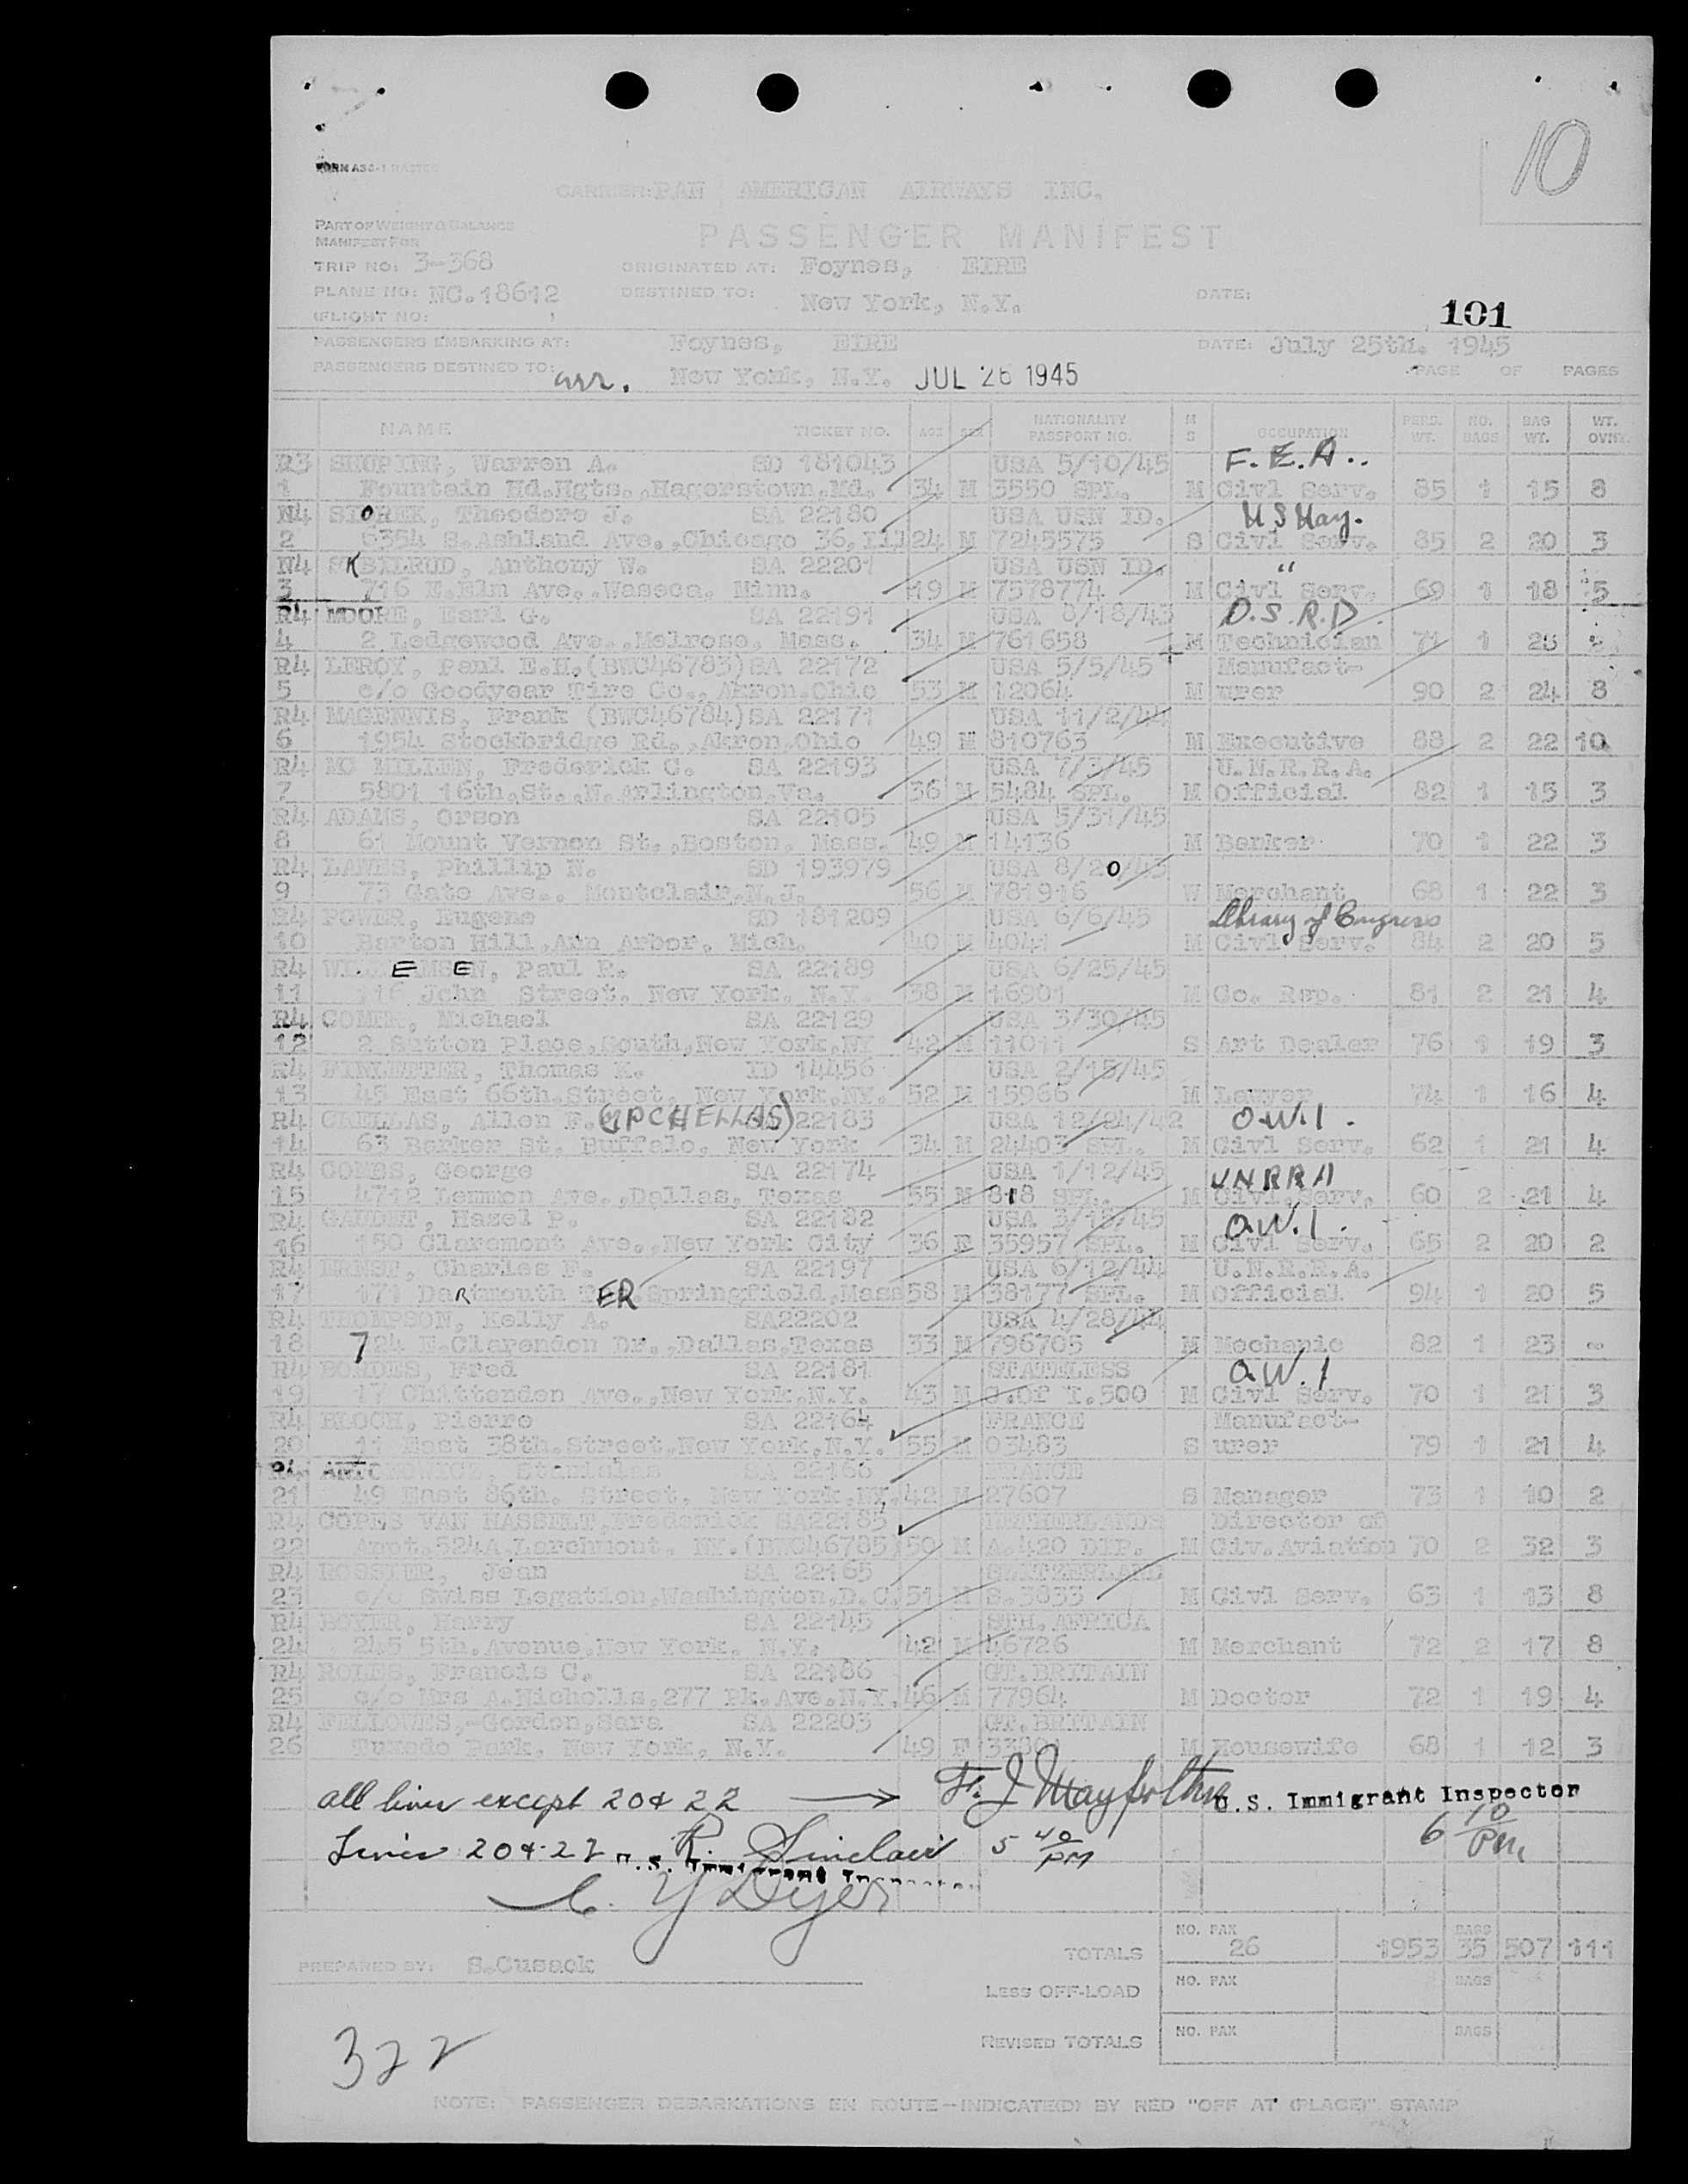 10
FORM
CARRIER: PAN AMERICAN AIRWAYS INC.
PART OF WEIGHT & BALANCE
MANIFEST FOR
PASSENGER MANIFEST
TRIP NO: 3-368
ORIGINATED AT: Foynes, EIRE
PLANE NO: NC.18612
DESTINED TO: New York, N.Y.
DATE:
(FLIGHT NO: )
101
PASSENGERS EMBARKING AT: Foynes, EIRE DATE: July 25th. 1945
PASSENGERS DESTINED TO: arr. New York, N.Y. JUL 26 1945 PAGE OF PAGES
NAME TICKET NO. AGE SEX NATIONALITY PASSPORT NO. M S OCCUPATION PERS. WT. NO. BAGS BAG WT. WT. OVN.
R3 SHUPING, Warren A. SD 181043 USA 5/10/45 F.E.A..
1 Fountain Hd.Hgts.,Hagerstown,Md. 34 M 3550 SPL. M Civl Serv. 85 1 15 8
N4 Theodore J. SA 22180 USA USN ID. U S Nav.
2 6354 S.Ashland Ave.,Chicago 36,Ill 24 M 7245575 S Civl Serv. 85 2 20 3
N4 Anthony W. SA 22201 USA USN ID. "
3 716 E.Elm Ave.,Waseca, Minn. 19 M 7578774 M Civl Serv. 69 1 18 5
R4 MOORE, Earl G. SA 22191 USA 8/18/43 O.S.R.D.
4 2 Ledgewood Ave.,Melrose, Mass. 34 M 761658 M Technician 71 1 25
R4 LEROY, Paul E.H.(BWC46783)SA 22172 USA 5/5/45 Manufact-
5 c/o Goodyear Tire Co., Akron.Ohio 53 M 12064 M urer 90 2 24 8
R4 MAGENNIS, Frank (BWC46784)SA 22171 USA 11/2/44
6 1954 Stockbridge Rd.,Akron,Ohio 49 M 810763 M Executive 88 2 22 10
R4 MC MILLEN, Frederick C. SA 22193 USA 7/3/45 U.N.R.R.A.
7 5801 16th.St.,N.Arlington,Va. 36 M 5484 SPL. M Official 82 1 15 3
R4 ADAMS, Orson SA 22105 USA 5/31/45
8 61 Mount Vernon St.,Boston, Mass. 49 M 14136 M Banker 70 1 22 3
R4 LAWES, Phillip N. SD 193979 USA 8/20/43
9 73 Gate Ave., Montclair,N.J. 56 M 781916 W Merchant 68 1 22 3
R4 POWER, Eugene SD 181209 USA 6/6/45 Library of Congress
10 Barton Hill,Ann Arbor, Mich. 40 M 4041 M Civl Serv. 84 2 20 5
R4 Paul R. SA 22189 USA 6/25/45
11 116 John Street, New York, N.Y. 38 M 16901 M Co. Rep. 81 2 21 4
R4 COMER, Michael SA 22129 USA 3/30/45
12 2 Sutton Place,South,New York,NY 42 M 11011 S Art Dealer 76 1 19 3
R4 FINLETTER, Thomas K. ID 14456 USA 2/15/45
13 45 East 66th.Street, New York.NY. 52 M 15966 M Lawyer 74 1 16 4
R4 CHELLAS, Allen F. 22183 USA 12/24/42 O.W.I.
14 63 Barker St. Buffalo, New York 34 M 24403 SPL. M Civl Serv. 62 1 21 4
R4 COMBS, George SA 22174 USA 1/12/45 UNRRA
15 4712 Lemmon Ave.,Dallas, Texas 55 M 818 SPL. M Civl.Serv. 60 2 21 4
R4 GAUDET, Hazel P. SA 22182 USA 3/15/45 O.W.I.
16 150 Claremont Ave.,New York City 36 F 35957 SPL. M Civl Serv. 65 2 20 2
R4 ERNST, Charles F. SA 22197 USA 6/12/44 U.N.R.R.A.
17 171 Dartmouth TER Springfield,Mass 58 M 38177 SPL. M Official 94 1 20 5
R4 THOMPSON, Kelly A. SA22202 USA 4/28/44
18 724 E.Clarendon Dr.,Dallas,Texas 33 M 796705 M Mechanic 82 1 23 -
R4 BORDES, Fred SA 22181 STATELESS O.W.I
19 17 Chittenden Ave.,New York.N.Y. 43 M .of I.500 M Civl Serv. 70 1 21 3
R4 BLOCH, Pierre SA 22164 FRANCE Manufact-
20 11 East 38th.Street.New York,N.Y. 55 M 03483 S urer 79 1 21 4
R4 Stanislas SA 22166 FRANCE
21 49 East 86th. Street, New York.NY. 42 M 27607 S Manager 73 1 10 2
R4 COPES VAN HASSELT,Frederick SA22185 NETHERLANDS Director of
22 Appt.524A,Larchmont. NY.(BWC46785) 50 M A.420 DIP. M Civ.Aviation 70 2 32 3
R4 ROSSIER, Jean SA 22165 SWITZERLAND
23 c/o Swiss Legation,Washington.D.C. 51 M S.3833 M Civl Serv. 63 1 13 8
R4 BOYER, Harry SA 22145 STH.AFRICA
24 245 5th.Avenue,New York. N.Y. 42 M 46726 M Merchant 72 2 17 8
R4 ROLES, Francis C. SA 22186 GT.BRITAIN
25 c/o Mrs A.Nicholls,277 Pk.Ave.N.Y. 46 M 77964 M Doctor 72 1 19 4
R4 FELLOWES,-Gordon,Sara SA 22203 GT.BRITAIN
26 Tuxedo Park, New York, N.Y. 49 F M Housewife 68 1 12 3
all lines except 20 & 22 → U.S. Immigrant Inspector
6 10/PM
Lines 20 & 22 R. Sinclair 5 40/PM
U.S. Immigrant
C. Y Dyer
TOTALS NO. PAX 26 1953 BAGS 35 507 111
PREPARED BY: S.Cusack
LESS OFF-LOAD NO. PAX BAGS
REVISED TOTALS NO. PAX BAGS
322
NOTE: PASSENGER DEBARKATIONS EN ROUTE—INDICATE(D) BY RED "OFF AT (PLACE)" STAMP